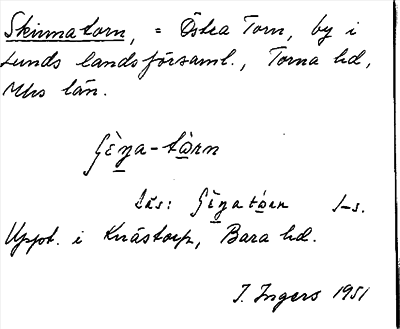 Skinnatorn, = Östra Torn, by i
Lunds landsförsaml., Torna hd,
Mhs län.
läs: I-s.
Uppt. i Knästorp, Bara hd.
I. Ingers 1951